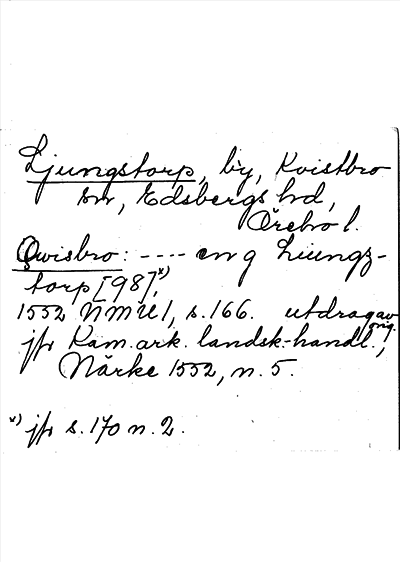 Ljungstorp, by, Kvistbro
sn, Edsbergs hd,
Örebro l.
Qwisbro: ---- en g Liungz-
torp [98],x)
1552 NMU 1, s. 166. utdrag av
orig.
jfr Kam.ark. landsk.handl.,
Närke 1552, n. 5.
x) jfr s. 170 n. 2.